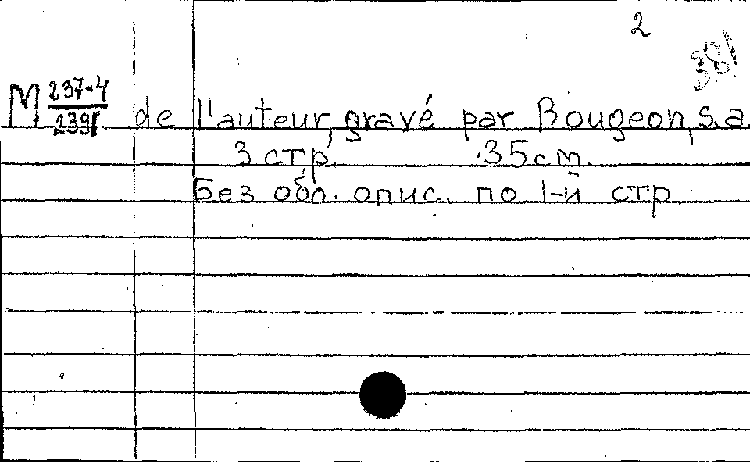 2
381
М 237-4 de l'auteur, gravé par Bougeon, s.a.
2391
3 стр. 35 см.
Без обл. опис. по 1-й стр.